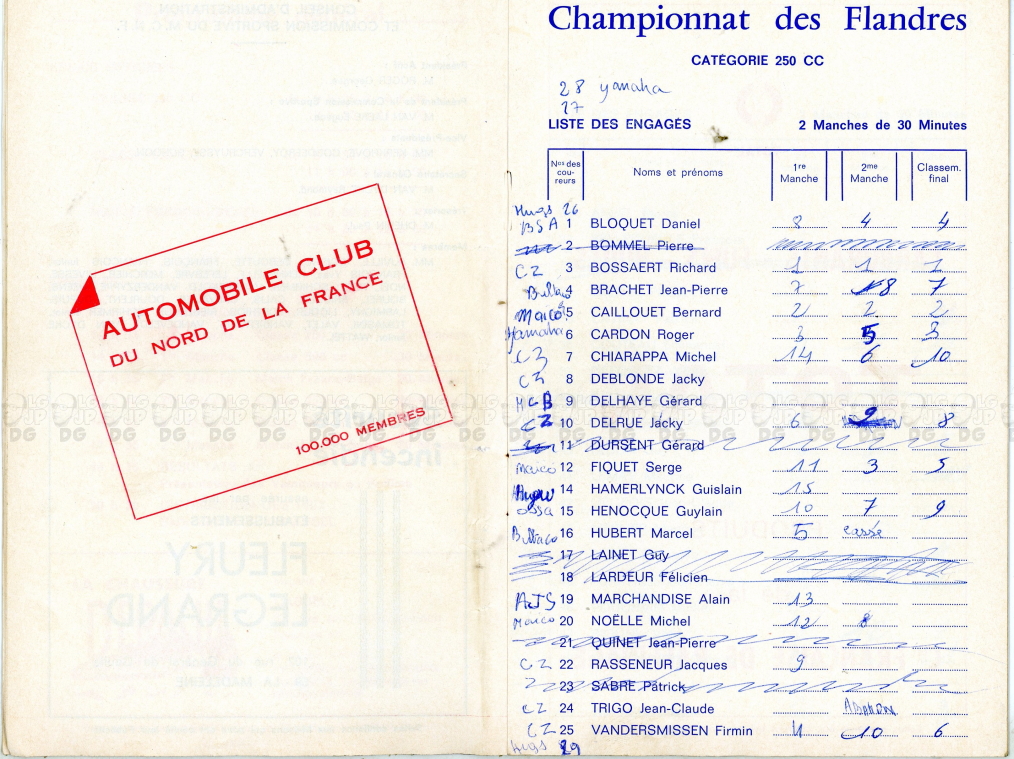 AUTOMOBILE CLUB
DU NORD DE LA FRANCE
100.000 MEMBRES
Championnat des Flandres
CATÉGORIE 250 CC
28 yamaha
27
LISTE DES ENGAGÉS 2 Manches de 30 Minutes
Nos des coureurs Noms et prénoms 1re Manche 2me Manche Classem. final
26
BSA 1 BLOQUET Daniel 8 4 4
2 BOMMEL Pierre
CZ 3 BOSSAERT Richard 1 1 1
4 BRACHET Jean-Pierre 7 8 7
Maico 5 CAILLOUET Bernard 2 2 2
Yamaha 6 CARDON Roger 3 5 3
CZ 7 CHIARAPPA Michel 14 6 10
CZ 8 DEBLONDE Jacky
9 DELHAYE Gérard
CZ 10 DELRUE Jacky 6 9 8
11 DURSENT Gérard
Maico 12 FIQUET Serge 11 3 5
14 HAMERLYNCK Guislain 15
ossa 15 HENOCQUE Guylain 10 7 9
Bultaco 16 HUBERT Marcel 5 cassé
17 LAINET Guy
18 LARDEUR Félicien
AJS 19 MARCHANDISE Alain 13
Maico 20 NOËLLE Michel 12
21 QUINET Jean-Pierre
CZ 22 RASSENEUR Jacques 9
23 SABRE Patrick
CZ 24 TRIGO Jean-Claude
CZ 25 VANDERSMISSEN Firmin 4 10 6
29